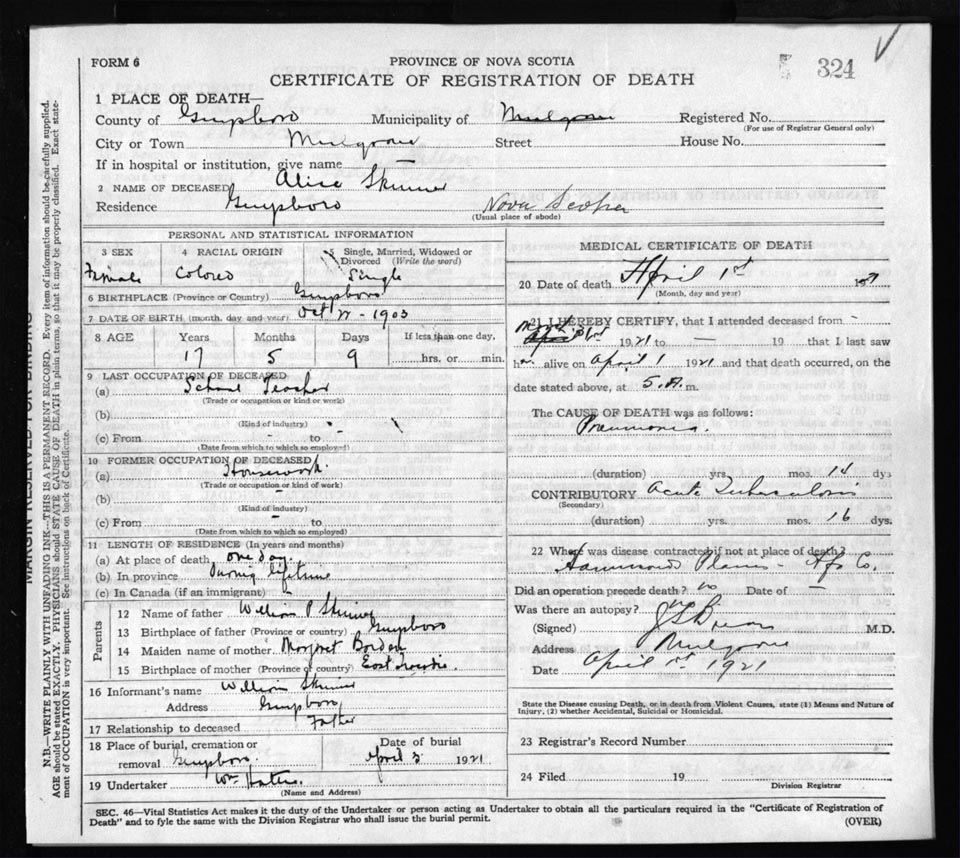 FORM 6
PROVINCE OF NOVA SCOTIA
CERTIFICATE OF REGISTRATION OF DEATH
324
1 PLACE OF DEATH—
County of Guysboro Municipality of Mulgrave Registered No.
(For use of Registrar General only)
City or Town Mulgrave Street House No.
If in hospital or institution, give name —
2 NAME OF DECEASED Alice Skinner
Residence Guysboro Nova Scotia
(Usual place of abode)
PERSONAL AND STATISTICAL INFORMATION
3 SEX 4 RACIAL ORIGIN 5 Single, Married, Widowed or Divorced (Write the word)
Female Colored Single
6 BIRTHPLACE (Province or Country) Guysboro
7 DATE OF BIRTH (month, day and year) Oct 1903
8 AGE Years Months Days If less than one day,
17 5 9 hrs. or min.
9 LAST OCCUPATION OF DECEASED
(a) School Teacher
(Trade or occupation or kind or work)
(b)
(Kind of industry)
(c) From - to -
(Date from which to which so employed)
10 FORMER OCCUPATION OF DECEASED
(a) Housework
(Trade or occupation or kind of work)
(b) -
(Kind of industry)
(c) From - to
(Date from which to which so employed)
11 LENGTH OF RESIDENCE (In years and months)
(a) At place of death one day
(b) In province During lifetime
(c) In Canada (if an immigrant) -
Parents
12 Name of father William P Skinner
13 Birthplace of father (Province or country) Guysboro
14 Maiden name of mother Margaret Borden
15 Birthplace of mother (Province or country) East
16 Informant's name William Skinner
Address Guysboro
17 Relationship to deceased Father
18 Place of burial, cremation or removal Guysboro. Date of burial April 3 1921
19 Undertaker Wm
(Name and Address)
MEDICAL CERTIFICATE OF DEATH
20 Date of death April 1st 19
(Month, day and year)
21 I HEREBY CERTIFY, that I attended deceased from -
1921 to — 19 that I last saw
h alive on April 1 1921 and that death occurred, on the
date stated above, at 5. A. m.
The CAUSE OF DEATH was as follows:
Pneumonia.
(duration) yrs. mos. 14 dys
CONTRIBUTORY Acute Tuberculosis
(Secondary)
(duration) yrs. mos. 16 dys.
22 Where was disease contracted if not at place of death?
Hammonds Plains - Hfx Co.
Did an operation precede death? no Date of —
Was there an autopsy?
(Signed) M.D.
Address Mulgrave
Date April 1st 1921
State the Disease causing Death, or in death from Violent Causes, state (1) Means and Nature of
Injury, (2) whether Accidental, Suicidal or Homicidal.
23 Registrar's Record Number
24 Filed 19
Division Registrar
SEC. 46—Vital Statistics Act makes it the duty of the Undertaker or person acting as Undertaker to obtain all the particulars required in the "Certificate of Registration of
Death" and to fyle the same with the Division Registrar who shall issue the burial permit. (OVER)
MARGIN RESERVED FOR BINDING
N.B.—WRITE PLAINLY WITH UNFADING INK—THIS IS A PERMANENT RECORD. Every item of information should be carefully supplied.
AGE should be stated EXACTLY. PHYSICIANS should STATE CAUSE OF DEATH in plain terms, so that it may be properly classified. Exact state-
ment of OCCUPATION is very important. See instructions on back of Certificate.